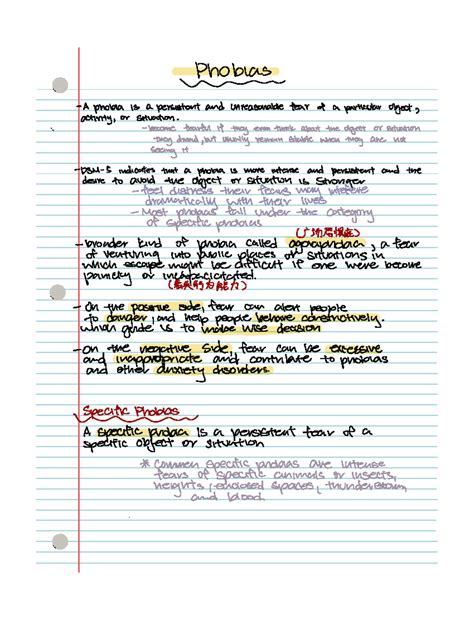 Phobias
- A phobia is a persistent and unreasonable fear of a particular object,
activity, or situation.
- become fearful if they even think about the object or situation
they dread, but usually remain stable when they are not
seeing it
- DSM-5 indicates that a phobia is more intense and persistent and the
desire to avoid the object or situation is stronger
- feel distress their fears may interfere
dramatically with their lives
- Most phobias fall under the category
of specific phobias
- broader kind of phobia called agoraphobia, a fear
of venturing into public places or situations in
which escape might be difficult if one were become
panicky or incapacitated.
- On the positive side, fear can alert people
to danger, and help people behave constructively.
which guide us to make wise decision
- on the negative side, fear can be excessive
and inappropriate and contribute to phobias
and other anxiety disorders
Specific Phobias
A specific phobia is a persistent fear of a
specific object or situation
* Common specific phobias are intense
fears of specific animals or insects,
heights, enclosed spaces, thunderstorm,
and blood.